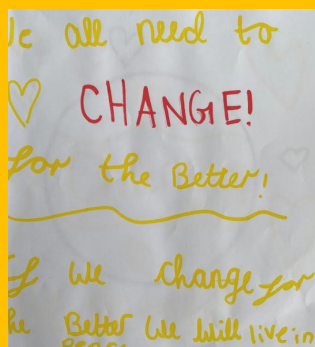 We all need to
CHANGE!
for the Better!
If we change for
the Better we will live in
peace